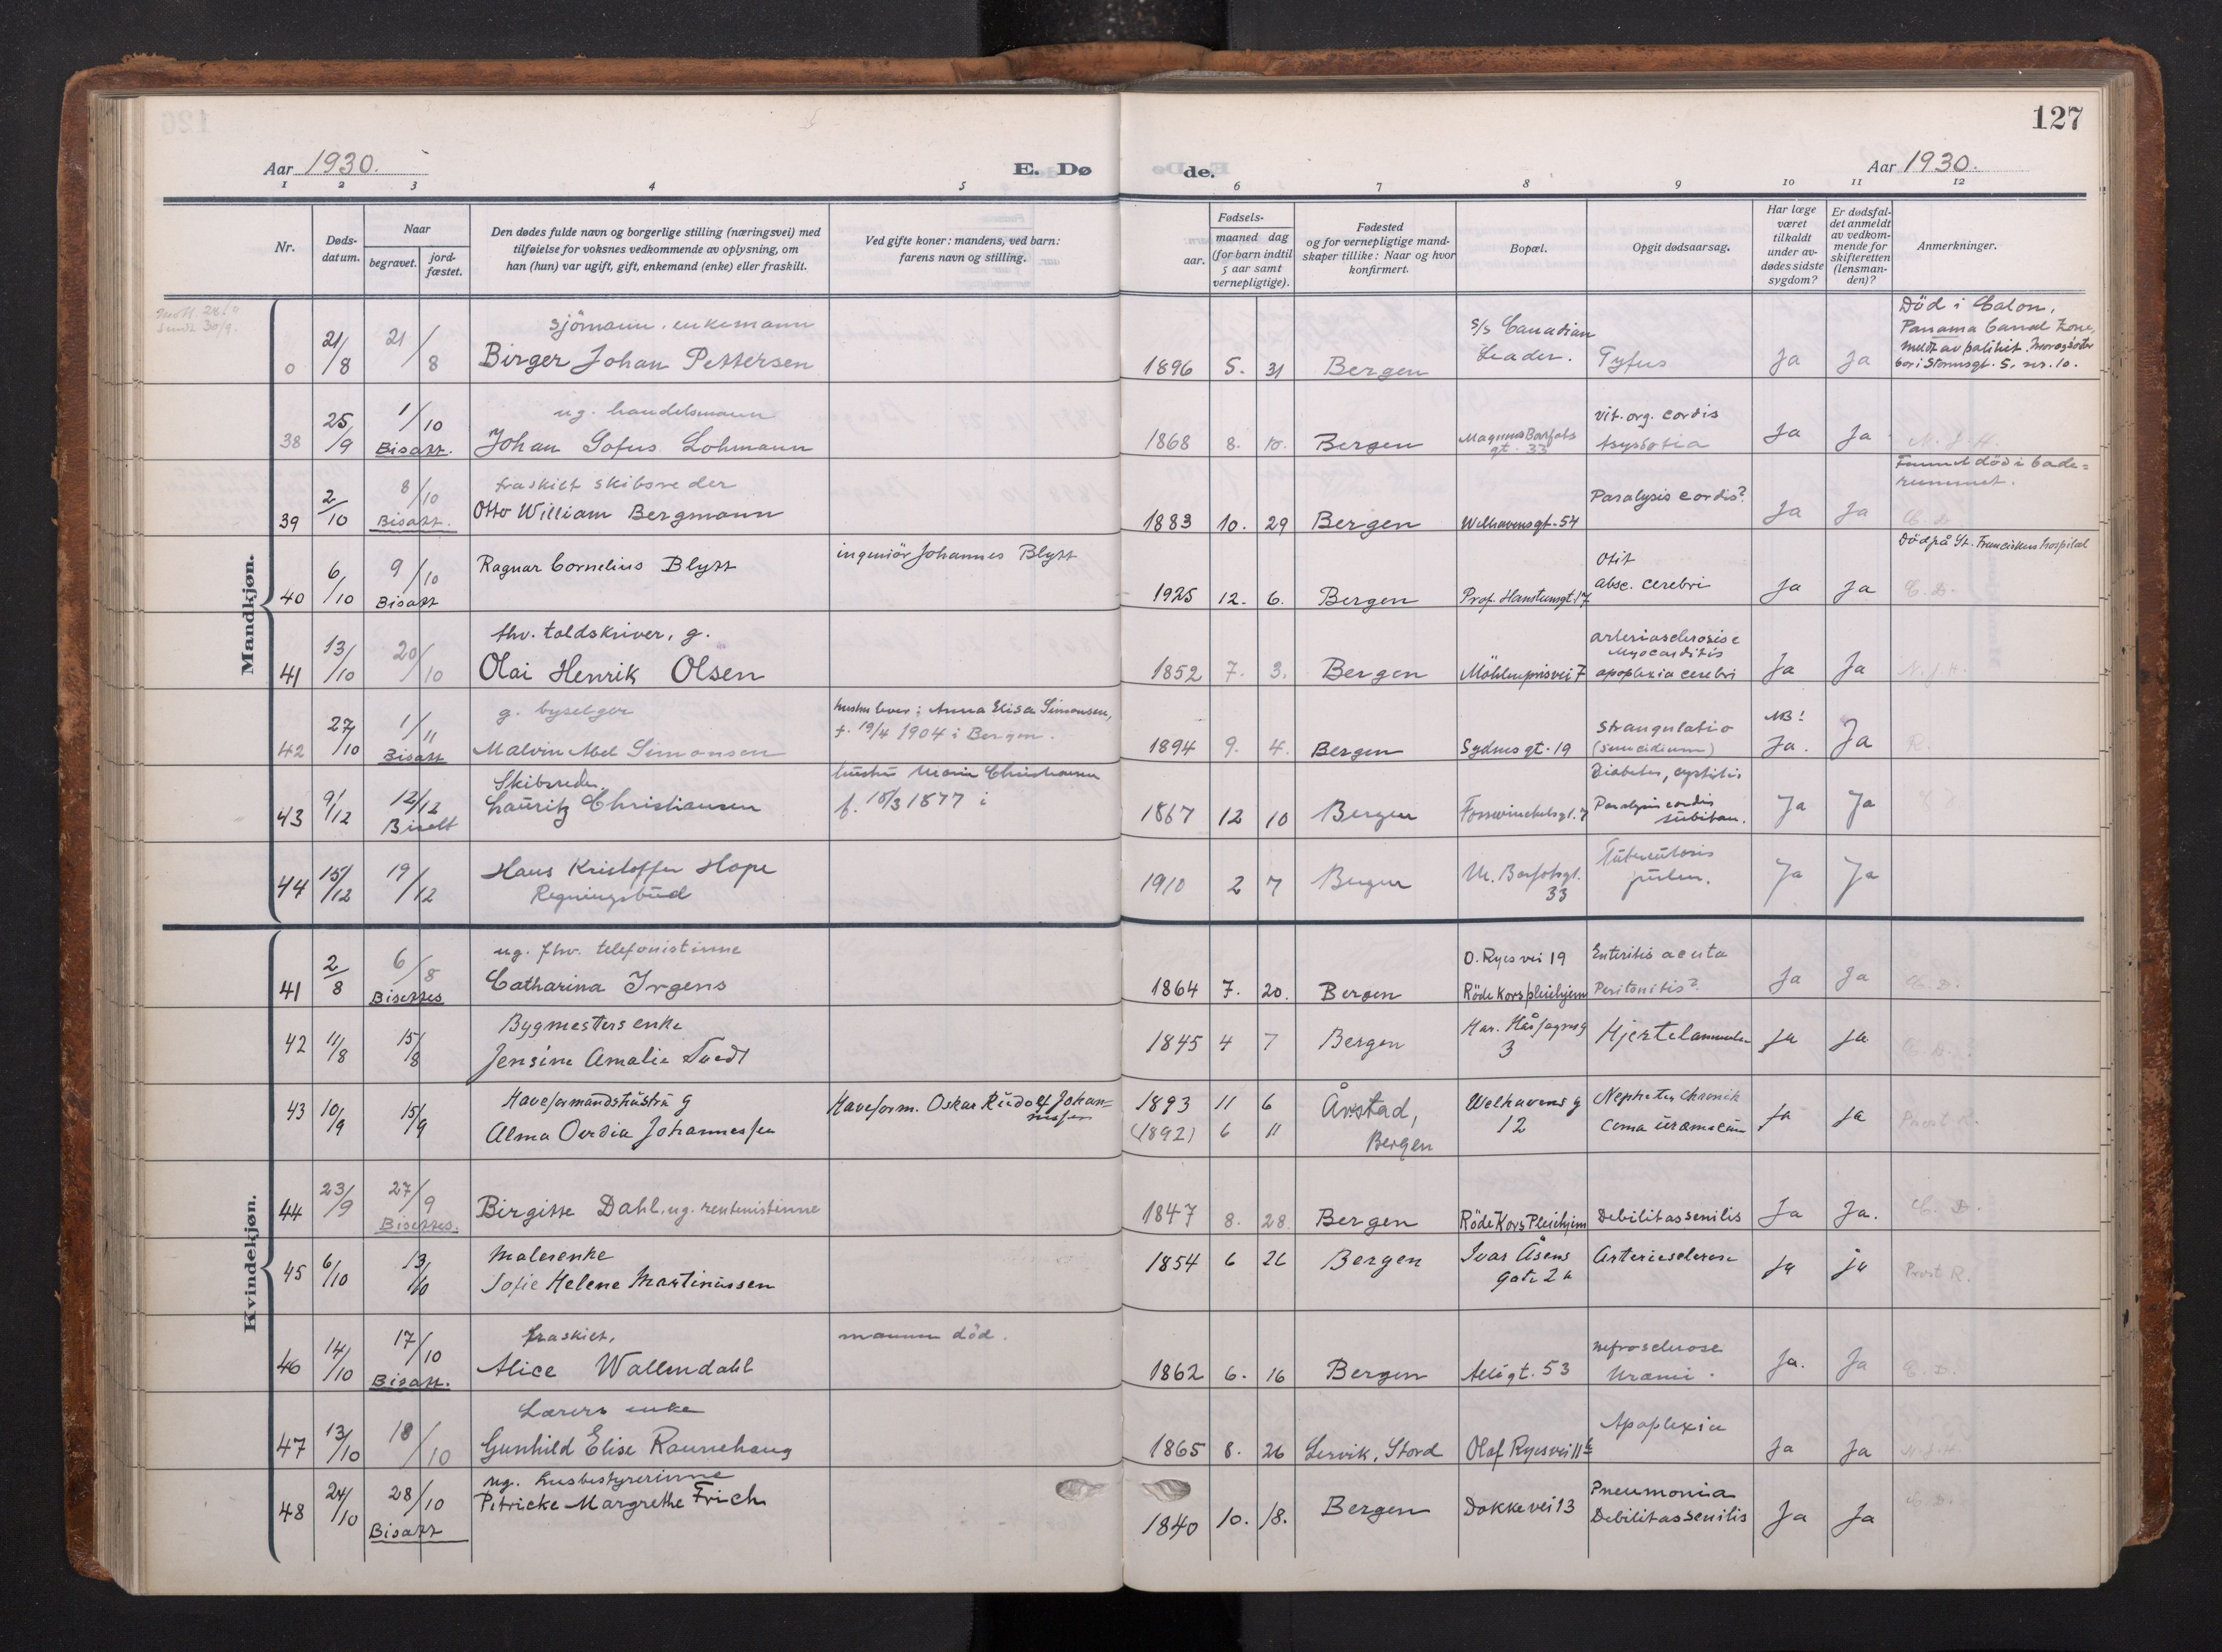 127
Aar 1930.
E. Døde.
Aar 1930.
1 2 3 4 5 6 7 8 9 10 11 12
Nr.
Døds-datum.
Naar
begravet.
jord-fæstet.
Den dødes fulde navn og borgerlige stilling (næringsvei) med
tilføielse for voksnes vedkommende av oplysning, om
han (hun) var ugift, gift, enkemand (enke) eller fraskilt.
Ved gifte koner: mandens, ved barn:
farens navn og stilling.
Fødsels-
aar.
maaned dag
(for barn indtil
5 aar samt
vernepligtige).
Fødested
og for vernepligtige mand-
skaper tillike: Naar og hvor
konfirmert.
Bopæl.
Opgit dødsaarsag.
Har læge
været
tilkaldt
under av-
dødes sidste
sygdom?
Er dødsfal-
det anmeldt
av vedkom-
mende for
skifteretten
(lensman-
den)?
Anmerkninger.
Mandkjøn.
0 21/8 21/8 sjömann, enkemann
Birger Johan Pettersen 1896 5. 31 Bergen s/s Canadian Leader. Tyfus Ja Ja Död i Colon, Panama Canal Zone,
38 25/9 1/10 Bisatt. ug. handelsmann
Johan Sofus Lohmann 1868 8. 10. Bergen Magnus Barfots gt. 33 vit. org. cordis Asystolia Ja Ja N. J. H.
39 2/10 8/10 Bisatt. fraskilt skibsreder
Otto William Bergmann 1883 10. 29 Bergen Welhavensgt. 54 Paralysis cordis? Ja Ja Funnet död i bade=rummet. C. D.
40 6/10 9/10 Bisatt Ragnar Cornelius Blytt ingeniör Johannes Blytt 1925 12. 6. Bergen Prof. Hansteensgt. 17 Otit absc. cerebri Ja Ja Död på St. Franciskus hospital C. D.
41 13/10 20/10 fhv. toldskriver, g.
Olai Henrik Olsen 1852 7. 3. Bergen Möhlenprisvei 7 arteriosclerosis c Myocarditis apoplexia cerebri Ja Ja N. J. H.
42 27/10 1/11 Bisatt g. byselger
Malvin Abel Simonsen hustru lever: Anna Elisa Simonsen, f. 19/4 1904 i Bergen. 1894 9. 4. Bergen Sydnesgt. 19 Strangulatio (suicidium) NB! Ja. Ja R.
43 9/12 12/12 Biselt Skibsreder
Lauritz Christiansen hustru Maria Christiansen f. 18/3 1877 i 1867 12 10 Bergen Fosswinckelsgt. 7 Diabetes, cystitis Paralysis cordis subitan. Ja Ja
44 15/12 19/12 Hans Kristoffer Hope
Regningsbud 1910 2 7 Bergen M. Barfotsgt. 33 Tuberculosis pulm. Ja Ja
Kvindekjøn.
41 2/8 6/8 Bisettes ug. fhv. telefonistinne
Catharina Irgens 1864 7. 20. Bergen O. Ryes vei 19 Röde Kors pleiehjem Enteritis acuta Peritonitis? Ja Ja C. D.
42 11/8 15/8 Bygmesters enke
Jensine Amalie Tvedt 1845 4 7 Bergen Har. Hårfagresg 3 Hjertelammelse Ja Ja C. D.
43 10/9 15/9 Haveformandshustru g
Alma Ovedia Johannessen Haveform. Oskar Rudolf Johan=nessen 1893 11 6
(1892) 6 11 Årstad, Bergen Welhavens g 12 Nephrites Chronik Coma uræmicum Ja Ja Prost R.
44 23/9 27/9 Bisettes. Birgitte Dahl, ug. rentenistinne 1847 8. 28. Bergen Röde Kors Pleiehjem Debilitas senilis Ja Ja. C. D.
45 6/10 13/10 Malerenke
Sofie Helene Martinussen 1854 6 26 Bergen Ivar Åsens gate 2a Arteriesclerose Ja ja Prost R.
46 14/10 17/10 Bisatt. fraskilt,
Alice Wallendahl mannen död. 1862 6. 16 Bergen Allégt. 53 nefrosclerose Uræmi. Ja. Ja C. D.
47 13/10 18/10 Lærers enke
Gunhild Elise Raunehaug 1865 8. 26 Lervik, Stord Olaf Ryesvei 11 Apoplexia Ja Ja N. J. H.
48 24/10 28/10 Bisatt ug. husbestyrerinne
Petricke Margrethe Frich 1840 10. 18. Bergen Dokkevei 13 Pneumonia Debilitas senilis Ja Ja C. D.